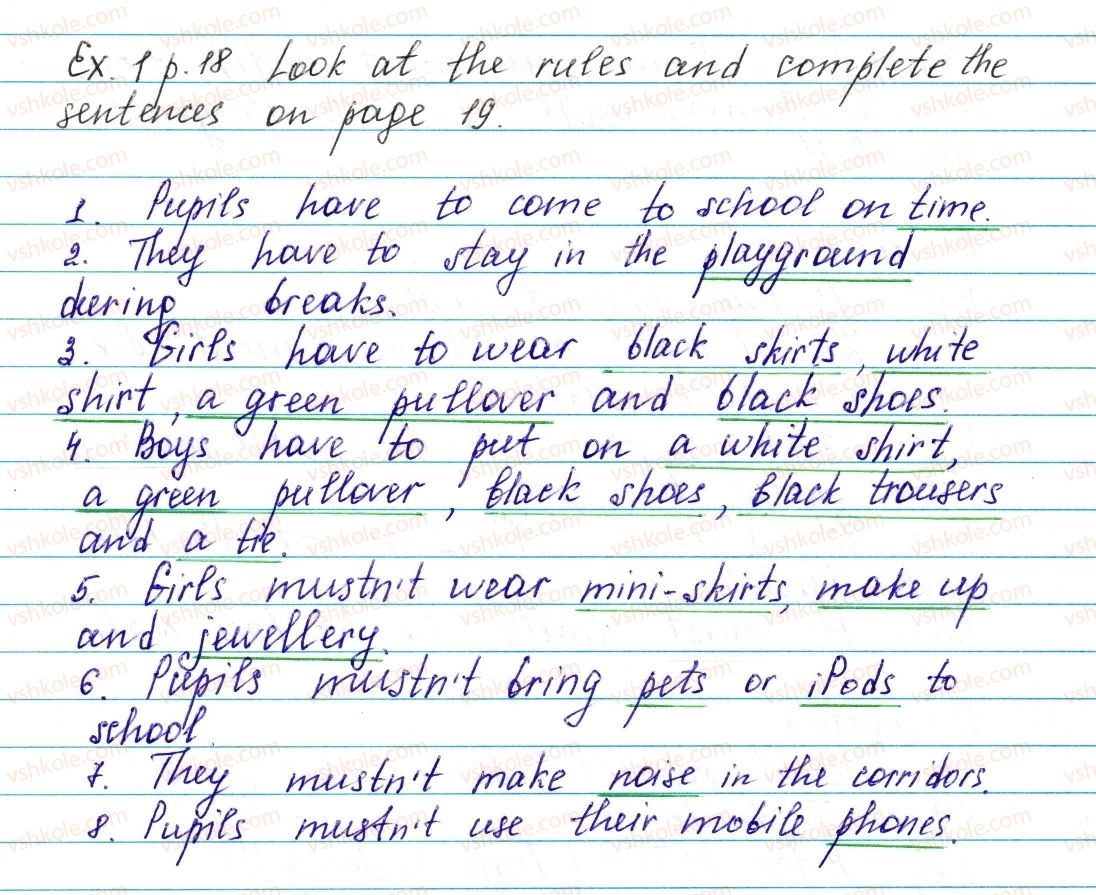 Ex. 1 p. 18 Look at the rules and complete the
sentences on page 19.
1. Pupils have to come to school on time.
2. They have to stay in the playground
during breaks.
3. Girls have to wear black skirts, white
shirt, a green pullover and black shoes.
4. Boys have to put on a white shirt,
a green pullover, black shoes, black trousers
and a tie.
5. Girls mustn't wear mini-skirts, make up
and jewellery.
6. Pupils mustn't bring pets or iPods to
school.
7. They mustn't make noise in the corridors.
8. Pupils mustn't use their mobile phones.
vshkole.com